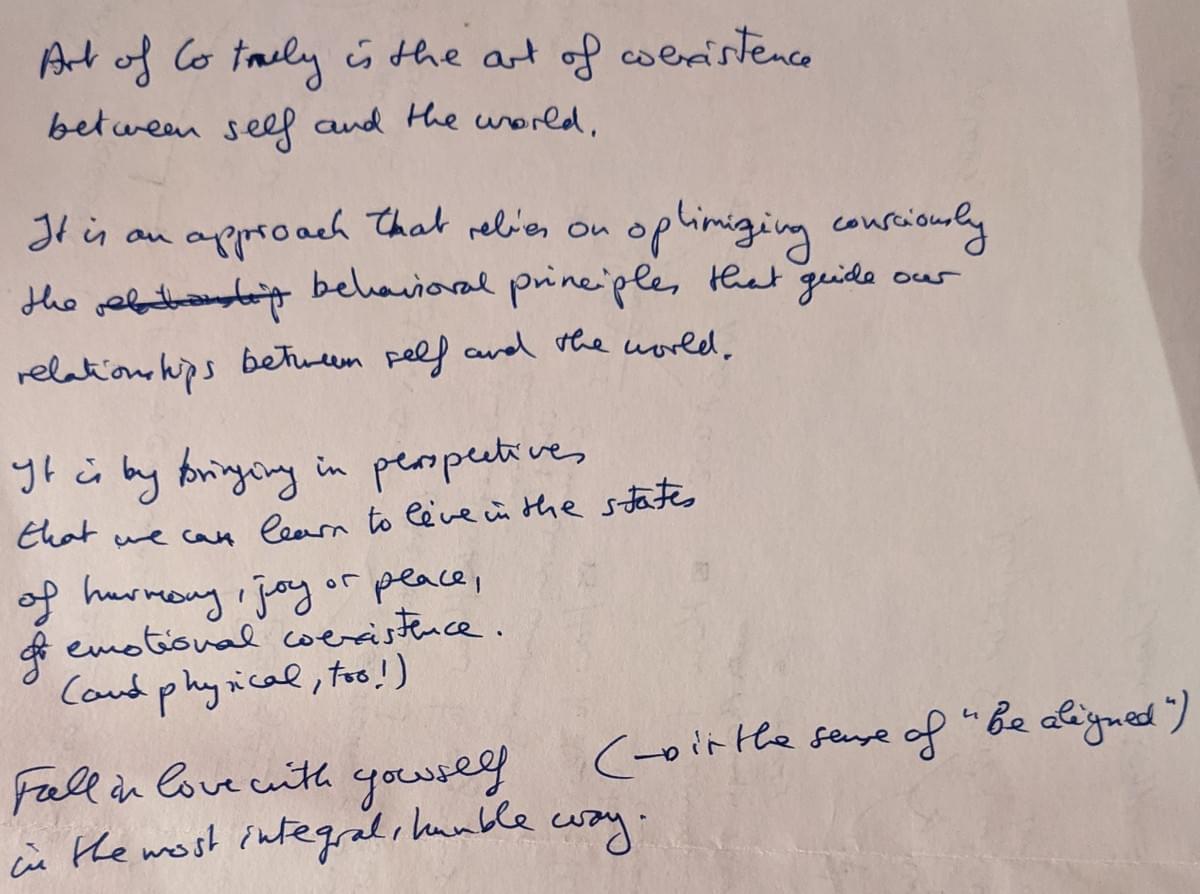 Art of Co truly is the art of coexistence
between self and the world.
It is an approach that relies on optimizing consciously
the relationship behavioral principles that guide our
relationships between self and the world.
It is by bringing in perspectives
that we can learn to live in the states
of harmony, joy or peace,
of emotional coexistence.
(and physical, too!)
Fall in love with yourself (→ in the sense of "Be aligned")
in the most integral, humble way.